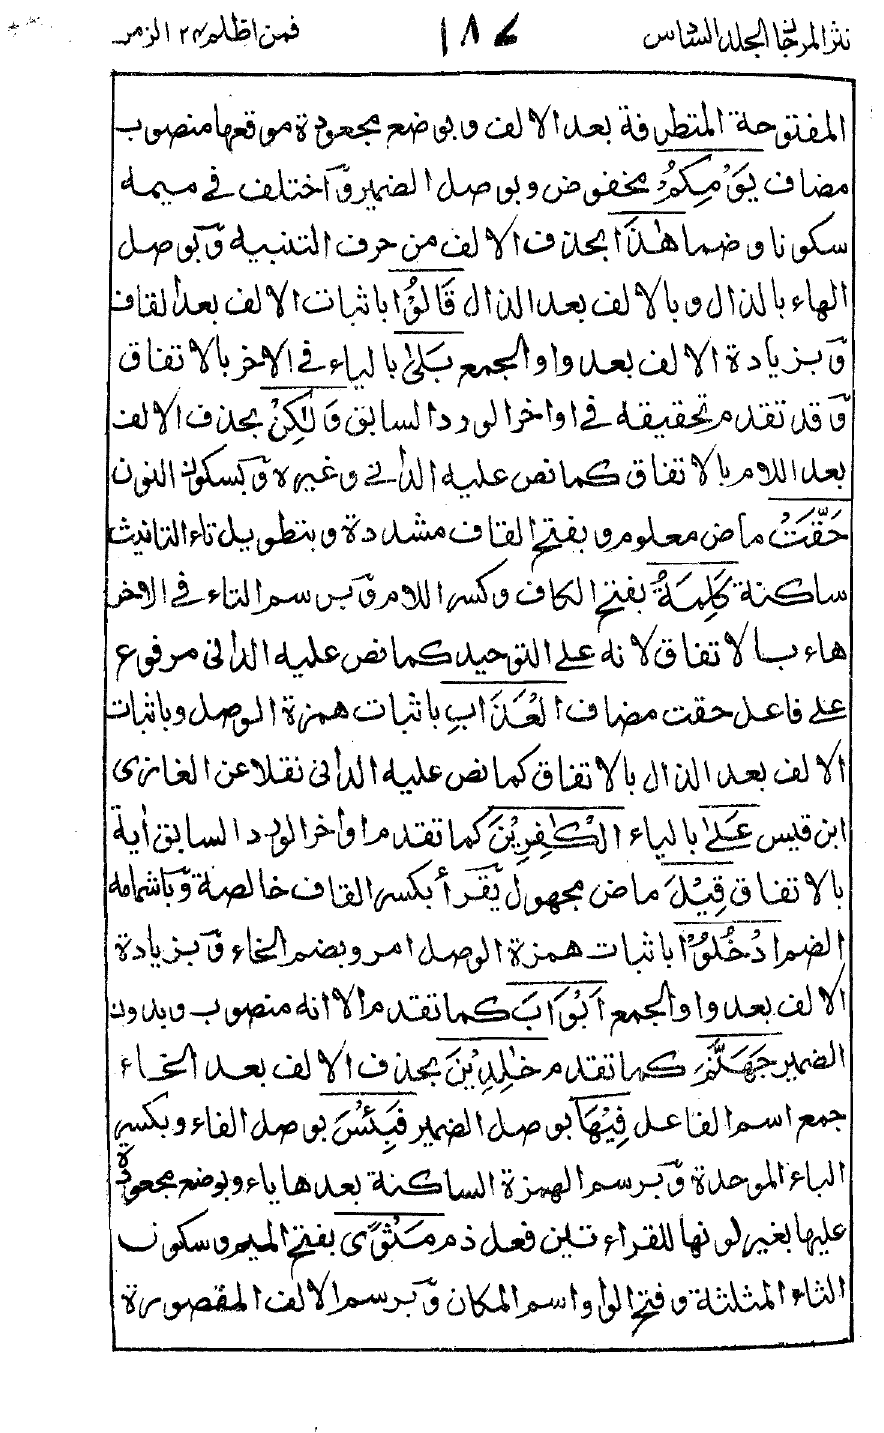 نثر المرجان المجلد السادس ١٨٧ فمن اظلم ٢٤ الزمر
المفتوحة المتطرفة بعد الالف وبوضع مجعودة موقعها منصوب
مضاف يَوْمِكُمْ مخفوض وبوصل الضمير وٓاختلف في ميمه
سكونا وضما هٰذَا بحذف الالف من حرف التنبيه وٓبوصل
الهاء بالذال وبالالف بعد الذال قَالُوْا باثبات الالف بعد القاف
وٓبزيادة الالف بعد واو الجمع بَلٰى بالياء في الاخر بالاتفاق
وٓقد تقدم تحقيقه في اواخر الورد السابق وَلٰكِنْ بحذف الالف
بعد اللام بالاتفاق كما نص عليه الداني وغيره وٓبسكون النون
حَقَّتْ ماض معلوم وبفتح القاف مشددة وبتطويل تاء التانيث
ساكنة كَلِمَةُ بفتح الكاف وكسر اللام وٓبرسم التاء في الاخر
هاء بالاتفاق لانه على التوحيد كما نص عليه الداني مرفوع
على فاعل حقت مضاف الْعَذَابِ باثبات همزة الوصل وباثبات
الالف بعد الذال بالاتفاق كما نص عليه الداني نقلا عن الغازى
ابن قيس عَلٰى بالياء الْكٰفِرِيْنَ كما تقدم اواخر الورد السابق أية
بالاتفاق قِيْلَ ماض مجهول يٓقرأ بكسر القاف خالصة وٓباشمامه
الضم ادْخُلُوْا باثبات همزة الوصل امر وبضم الخاء وٓبزيادة
الالف بعد واو الجمع اَبْوَابَ كما تقدم الا انه منصوب وبدون
الضمير جَهَنَّمَ كما تقدم خٰلِدِيْنَ بحذف الالف بعد الخاء
جمع اسم الفاعل فِيْهَا بوصل الضمير فَبِئْسَ بوصل الفاء وبكسر
الباء الموحدة وٓبرسم الهمزة الساكنة بعدها ياء وبوضع مجعودة
عليها بغير لونها للقراءتين فعل ذم مَثْوَى بفتح الميم وسكون
الثاء المثلثة وفتح الواو اسم المكان وٓبرسم الالف المقصورة